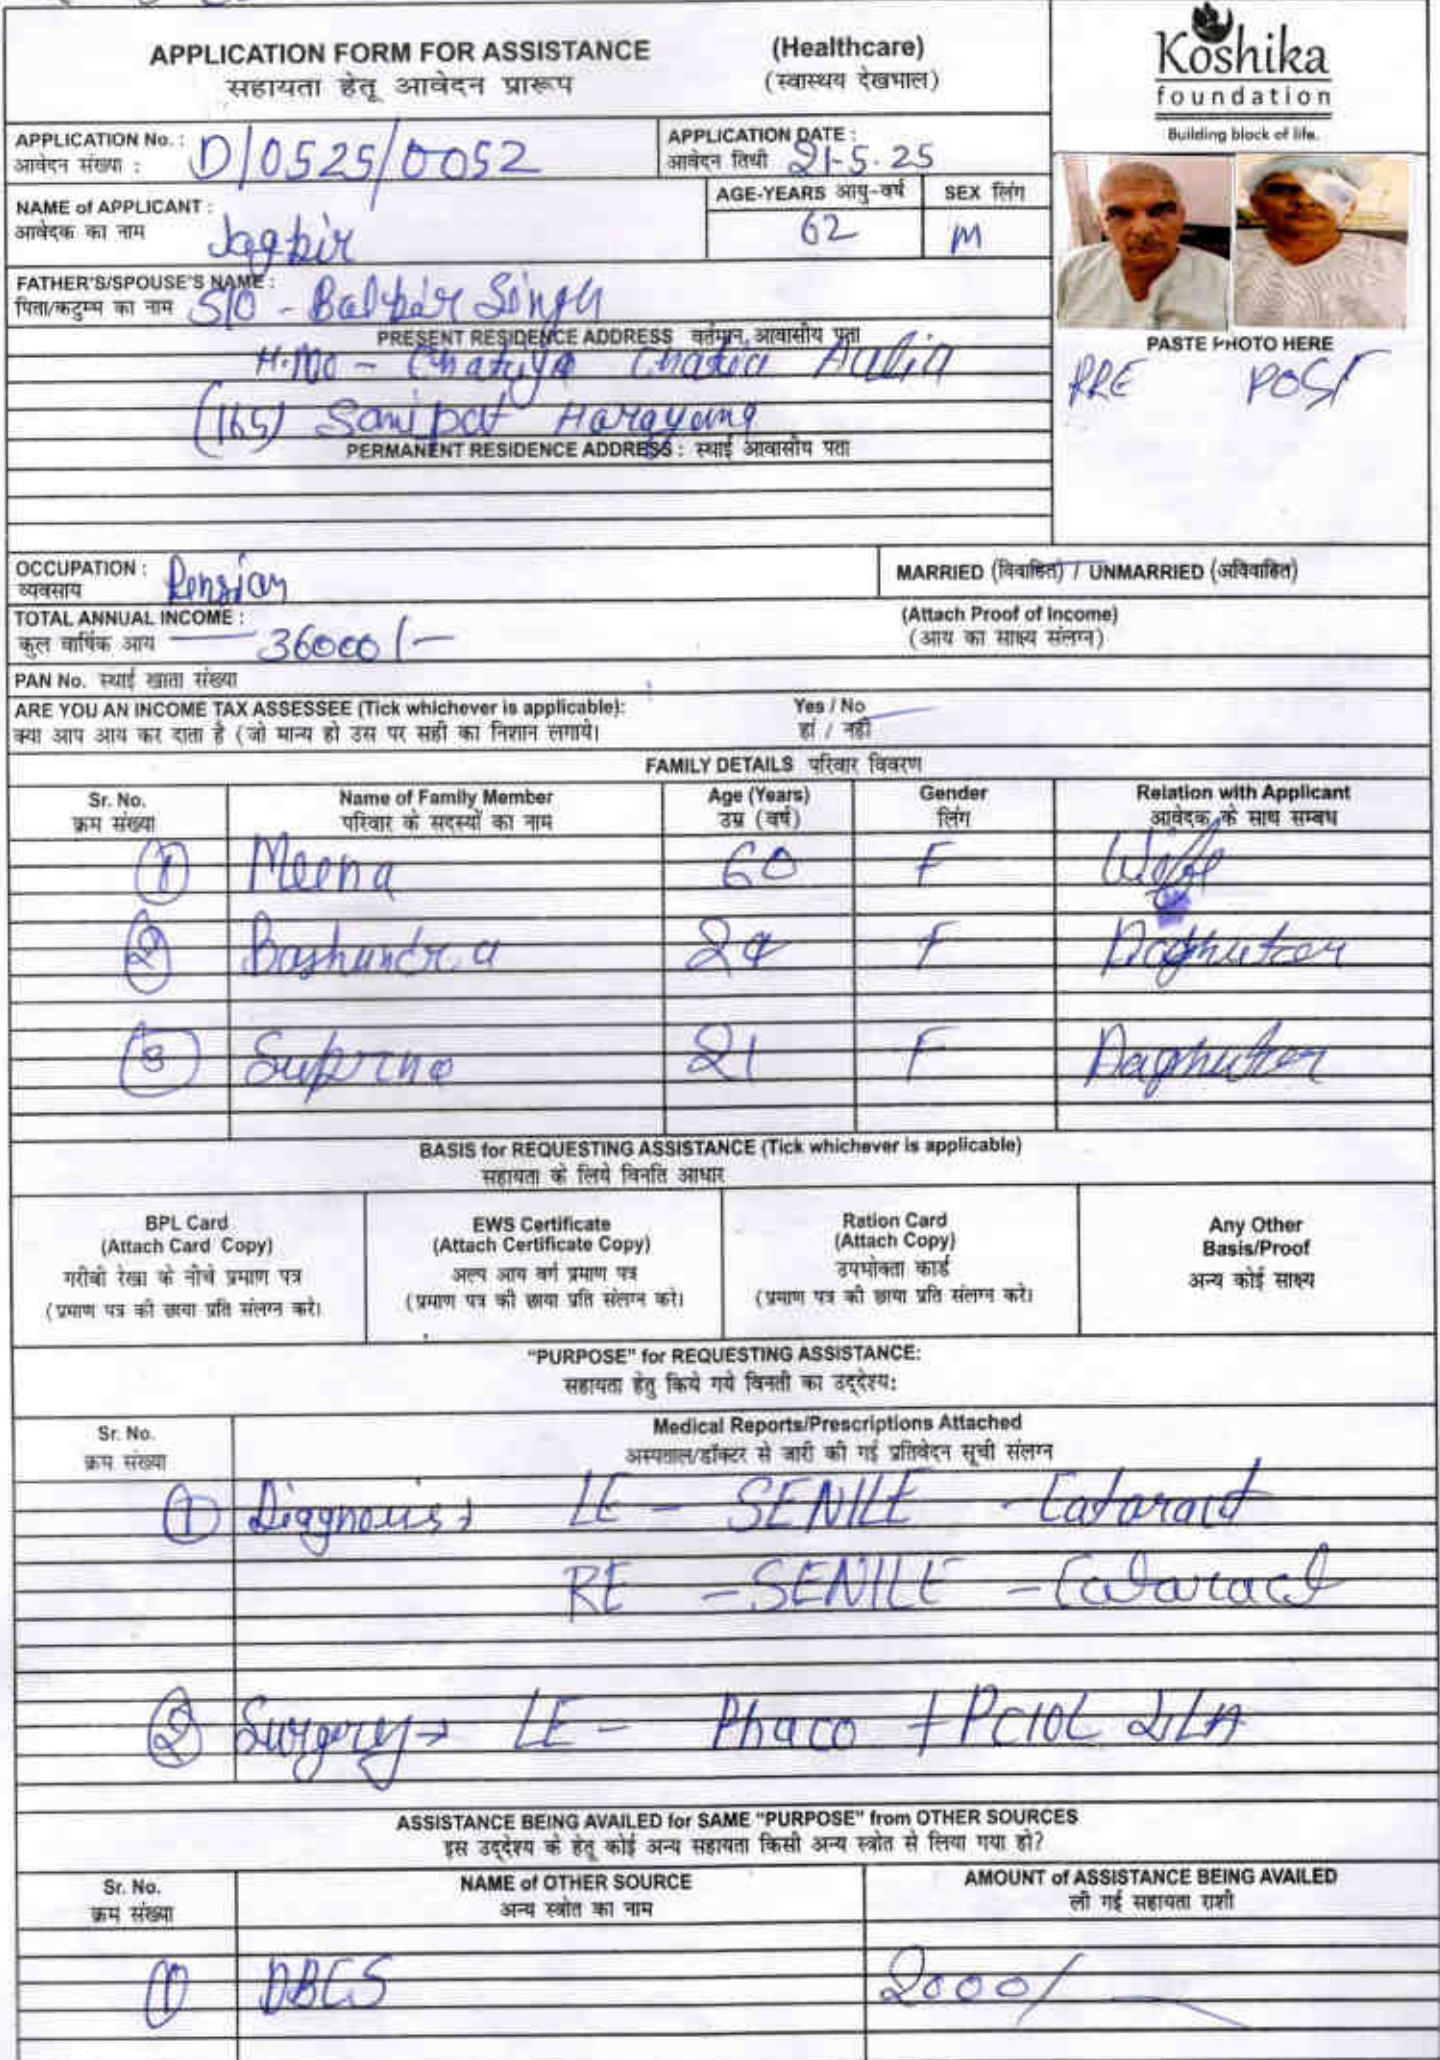 APPLICATION FORM FOR ASSISTANCE (Healthcare)
सहायता हेतू आवेदन प्रारूप (स्वास्थय देखभाल)
Koshika
foundation
Building block of life.
APPLICATION No. : D/0525/0052
आवेदन संख्या :
APPLICATION DATE : 21-5-25
आवेदन तिथी
NAME of APPLICANT : Jagbir
आवेदक का नाम
AGE-YEARS आयु-वर्ष 62
SEX लिंग M
FATHER'S/SPOUSE'S NAME : S/O - Balbir Singh
पिता/कटुम्ब का नाम
PRESENT RESIDENCE ADDRESS वर्तमान आवासीय पता
H.NO - Chatiya Aulia
(165) Sonipat Harayana
PERMANENT RESIDENCE ADDRESS : स्थाई आवासीय पता
PASTE PHOTO HERE
PRE POST
OCCUPATION : Pension
व्यवसाय
MARRIED (विवाहित) / UNMARRIED (अविवाहित)
TOTAL ANNUAL INCOME : 36000/-
कुल वार्षिक आय
(Attach Proof of Income)
(आय का साक्ष्य संलग्न)
PAN No. स्थाई खाता संख्या
ARE YOU AN INCOME TAX ASSESSEE (Tick whichever is applicable): Yes / No
क्या आप आय कर दाता है (जो मान्य हो उस पर सही का निशान लगाये। हां / नही
FAMILY DETAILS परिवार विवरण
Sr. No. Name of Family Member Age (Years) Gender Relation with Applicant
क्रम संख्या परिवार के सदस्यों का नाम उम्र (वर्ष) लिंग आवेदक के साथ सम्बध
1 Meena 60 F Wife
2 Bashundra 24 F Daghuter
3 Suprna 21 F Daghuter
BASIS for REQUESTING ASSISTANCE (Tick whichever is applicable)
सहायता के लिये विनति आधार
BPL Card
(Attach Card Copy)
गरीबी रेखा के नीचे प्रमाण पत्र
(प्रमाण पत्र की छाया प्रति संलग्न करे।
EWS Certificate
(Attach Certificate Copy)
अल्प आय वर्ग प्रमाण पत्र
(प्रमाण पत्र की छाया प्रति संलग्न करे।
Ration Card
(Attach Copy)
उपभोक्ता कार्ड
(प्रमाण पत्र की छाया प्रति संलग्न करे।
Any Other
Basis/Proof
अन्य कोई साक्ष्य
"PURPOSE" for REQUESTING ASSISTANCE:
सहायता हेतु किये गये विनती का उद्देश्य:
Sr. No. Medical Reports/Prescriptions Attached
क्रम संख्या अस्पताल/डॉक्टर से जारी की गई प्रतिवेदन सूची संलग्न
1 Diagnosis → LE - SENILE - Cataract
RE - SENILE - Cataract
2 Surgery → LE - Phaco + PCIOL
ASSISTANCE BEING AVAILED for SAME "PURPOSE" from OTHER SOURCES
इस उद्देश्य के हेतू कोई अन्य सहायता किसी अन्य स्त्रोत से लिया गया हो?
Sr. No. NAME of OTHER SOURCE AMOUNT of ASSISTANCE BEING AVAILED
क्रम संख्या अन्य स्त्रोत का नाम ली गई सहायता राशी
1 DBCS 2000/-